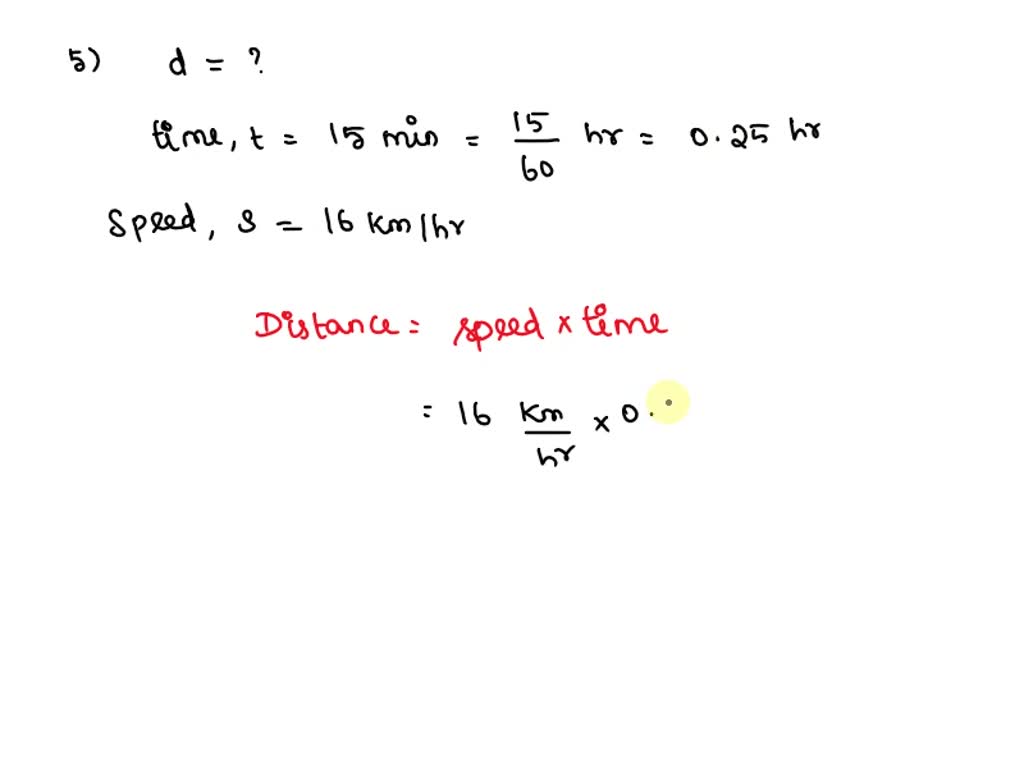 5) d = ?
time, t = 15 min = 15/60 hr = 0.25 hr
Speed, s = 16 km/hr
Distance = speed × time
= 16 km/hr × 0.